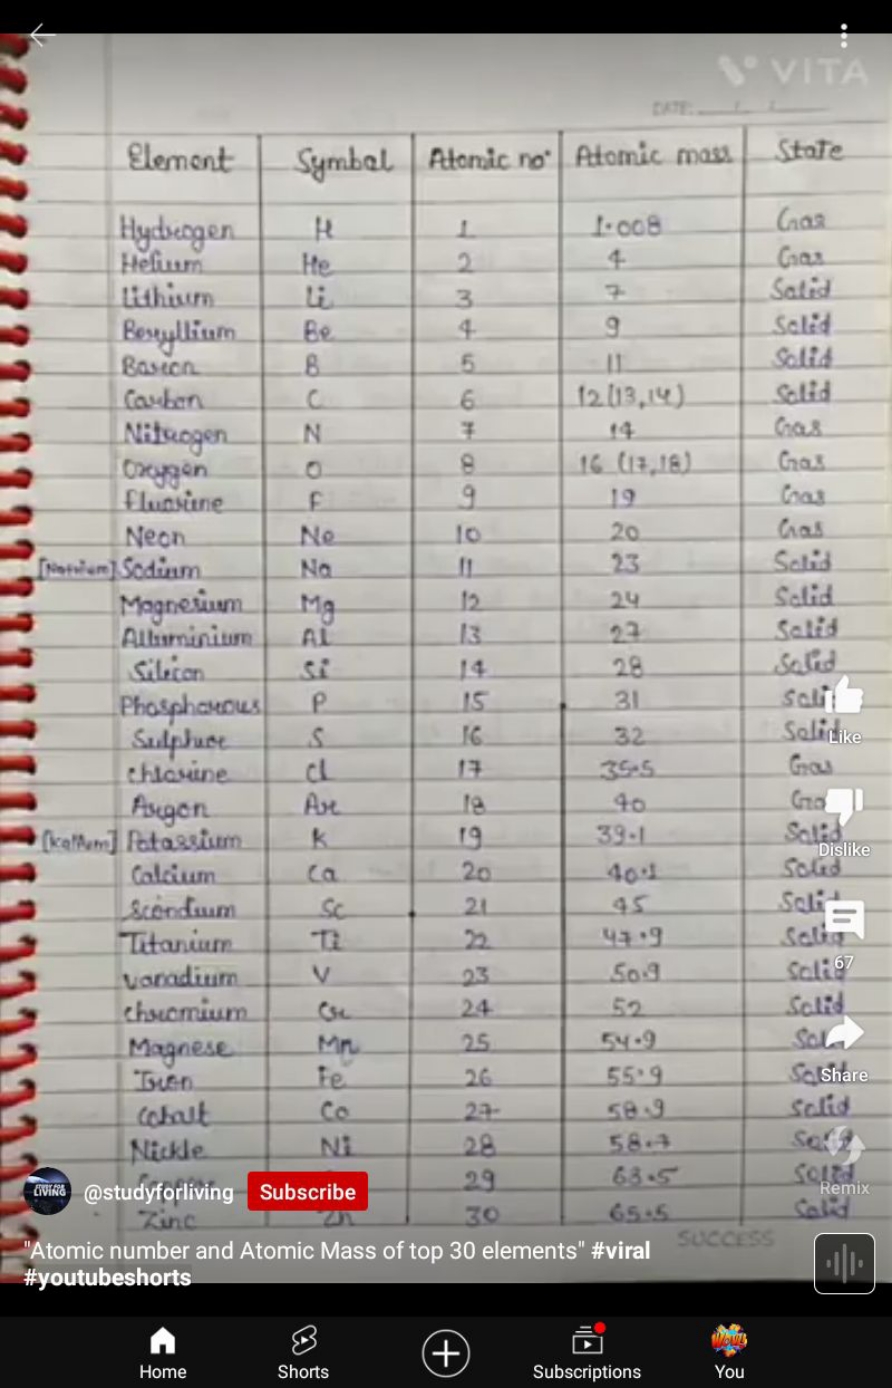 VITA
DATE:
Element Symbol Atomic no. Atomic mass State
Hydrogen H 1 1.008 Gas
Helium He 2 4 Gas
Lithium Li 3 7 Solid
Beryllium Be 4 9 Solid
Boron B 5 11 Solid
Carbon C 6 12(13,14) Solid
Nitrogen N 7 14 Gas
Oxygen O 8 16 (17,18) Gas
Fluorine F 9 19 Gas
Neon Ne 10 20 Gas
[Natrium] Sodium Na 11 23 Solid
Magnesium Mg 12 24 Solid
Alluminium Al 13 27 Solid
Silicon Si 14 28 Solid
Phosphorous P 15 31 Soli
Sulphur S 16 32 Solid
Like
chlorine Cl 17 35.5 Gas
Argon Ar 18 40 Ga
[kalium] Potassium K 19 39.1 Solid
Dislike
Calcium Ca 20 40.1 Solid
Scandium Sc 21 45 Soli
Titanium Ti 22 47.9 Solid
67
vanadium V 23 50.9 Solid
chromium Cr 24 52 Solid
Magnese Mn 25 54.9 Sol
Iron Fe 26 55.9 Solid
Share
Cobalt Co 27 58.9 Solid
Nickle Ni 28 58.7 Solid
Copper 29 63.5 Solid
Remix
STUDY FOR LIVING @studyforliving Subscribe
Zinc Zn 30 65.5 Solid
SUCCESS
"Atomic number and Atomic Mass of top 30 elements" #viral
#youtubeshorts
Home Shorts Subscriptions You